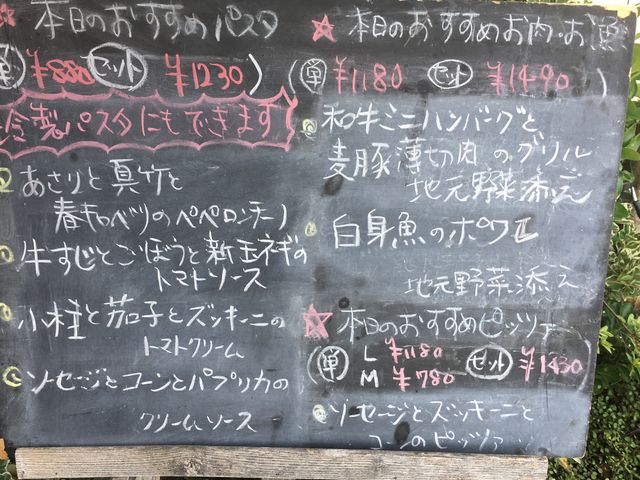 本日のおすすめパスタ
単 ¥880 セット ¥1230)
冷製パスタにもできます
あさりと真竹と
春キャベツのペペロンチーノ
牛すじとごぼうと新玉ネギの
トマトソース
小柱と茄子とズッキーニの
トマトクリーム
ソーセージとコーンとパプリカの
クリームソース
☆本日のおすすめお肉・お
(単 ¥1180 セット ¥1490)
和牛ミニハンバーグと
麦豚薄切肉のグリル
地元野菜添え
白身魚のポワレ
地元野菜添え
☆本日のおすすめピッツァ
(単 L ¥1180 セット ¥1430)
M ¥780
ソーセージとズッキーニと
コーンのピッツァ